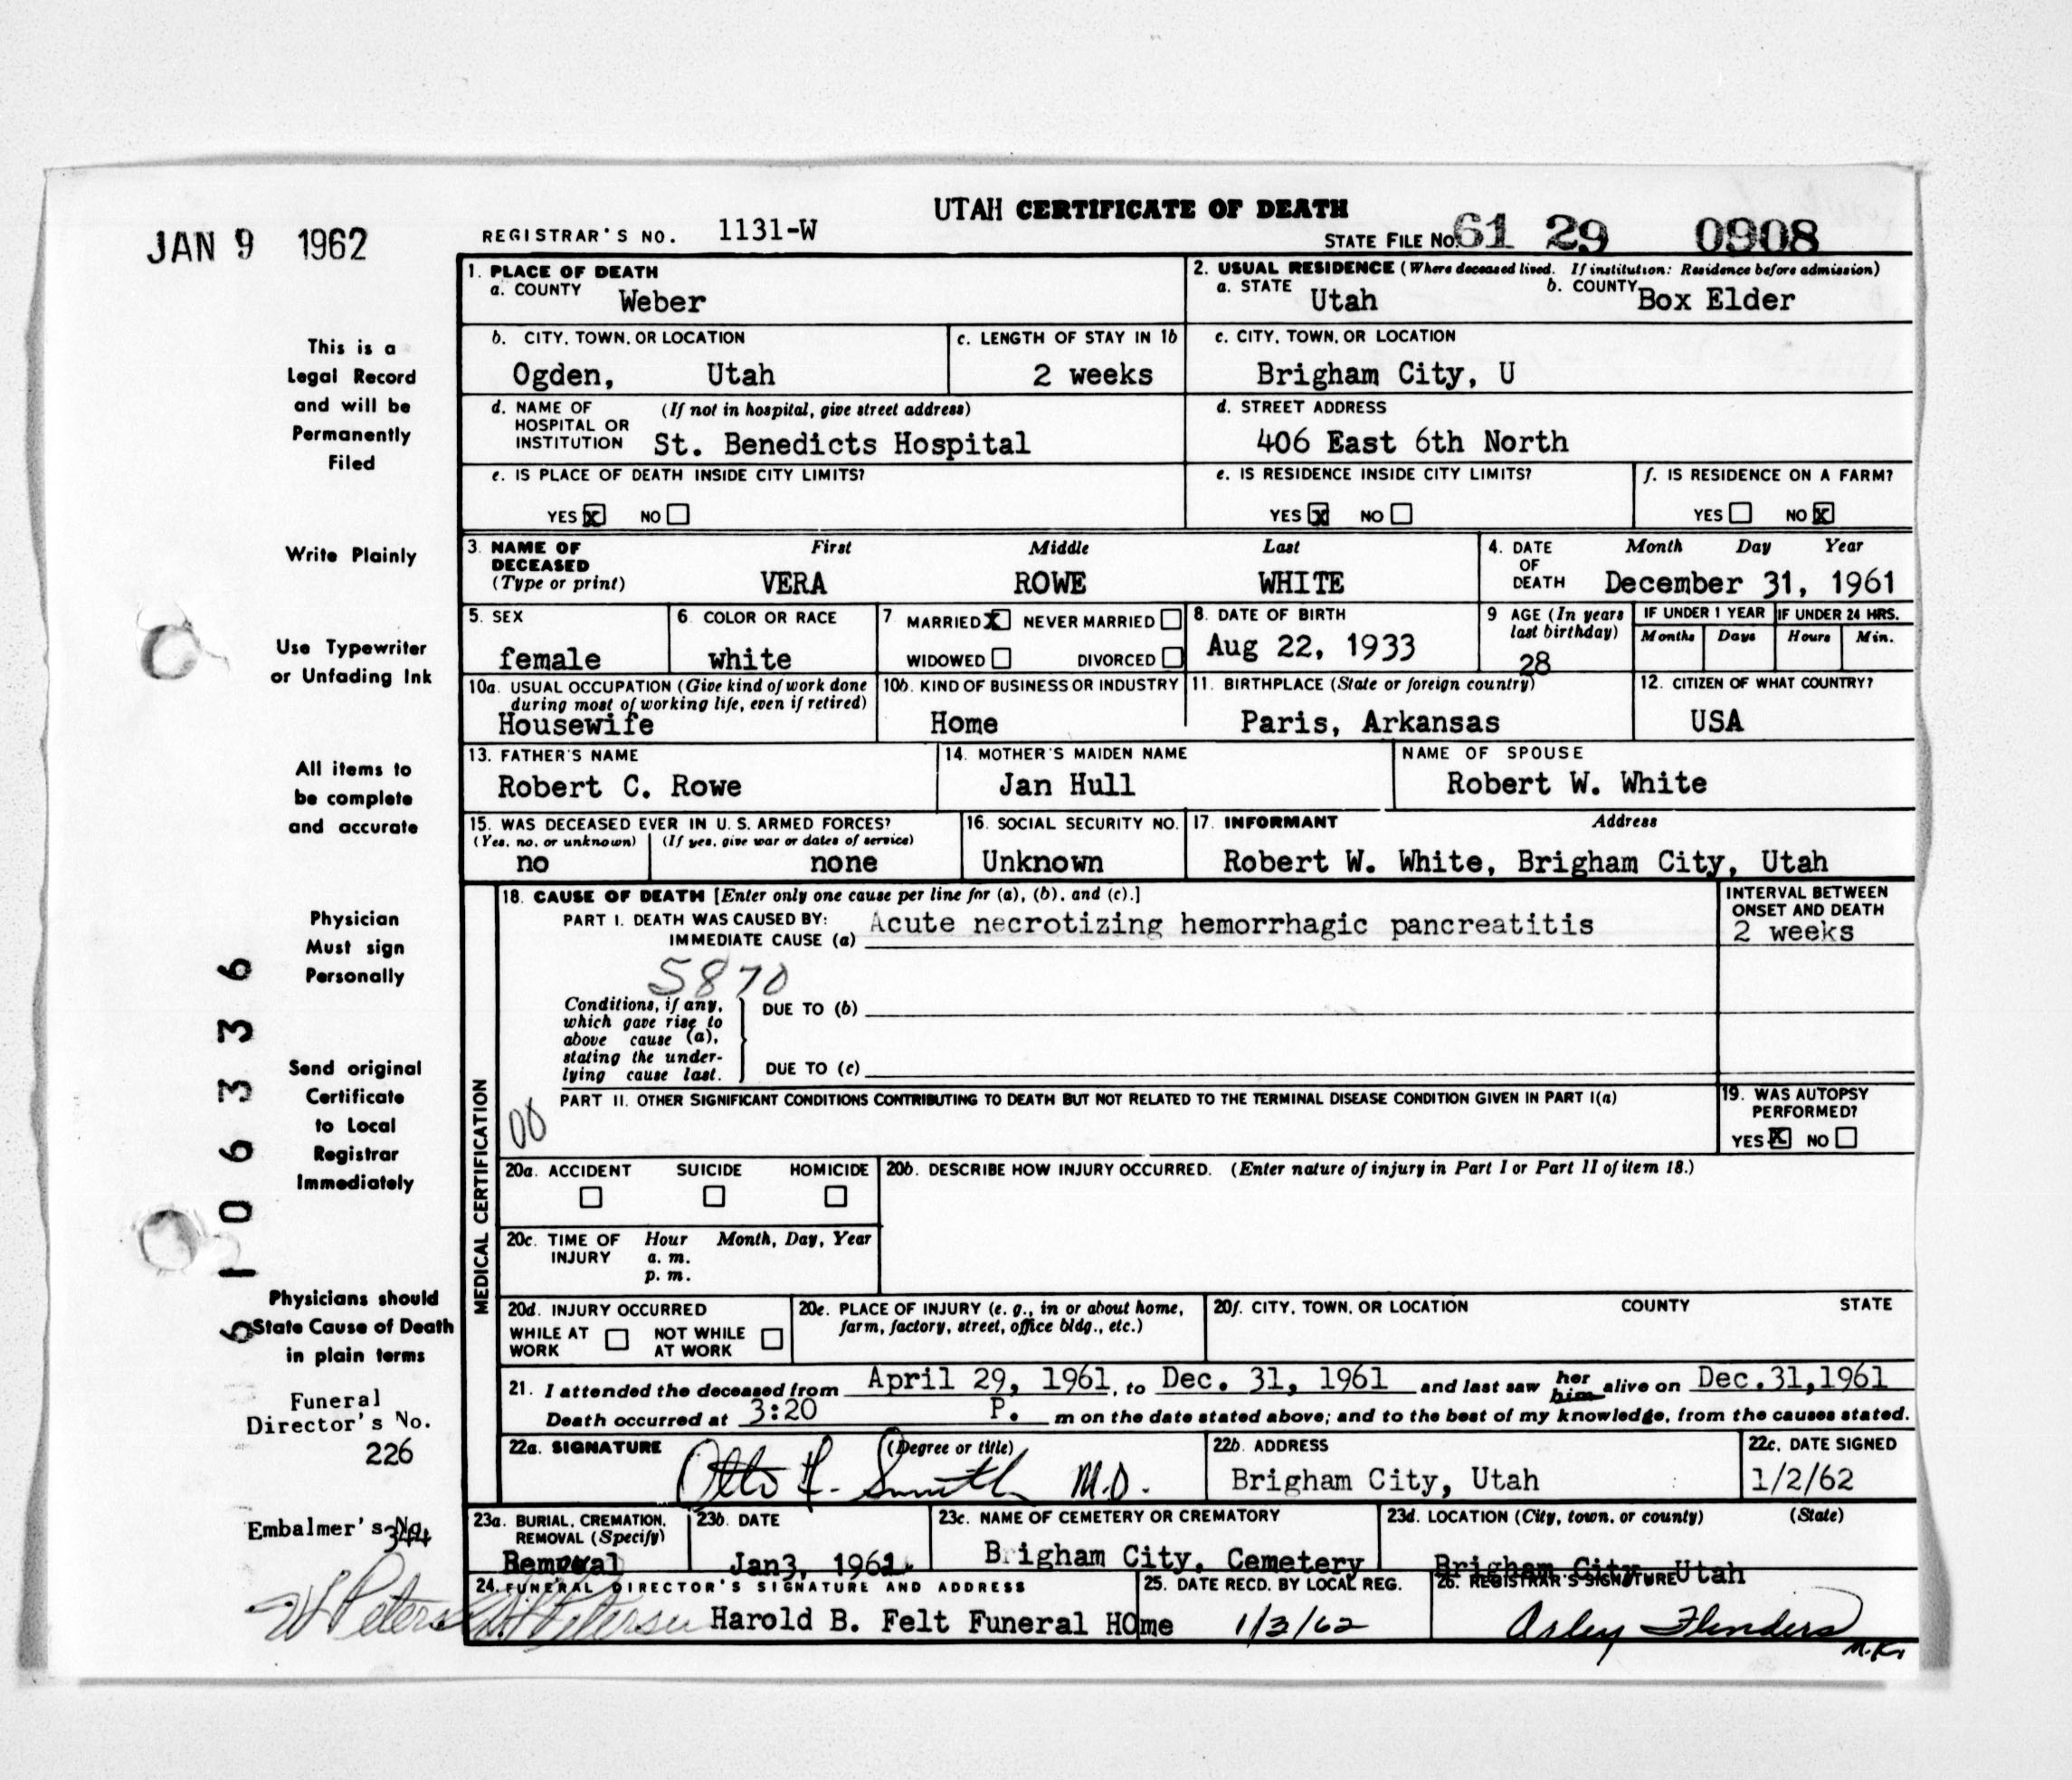 UTAH CERTIFICATE OF DEATH
JAN 9 1962
REGISTRAR'S NO. 1131-W
STATE FILE NO. 61 29 0908
1. PLACE OF DEATH
a. COUNTY Weber
2. USUAL RESIDENCE (Where deceased lived. If institution: Residence before admission)
a. STATE Utah b. COUNTY Box Elder
b. CITY, TOWN, OR LOCATION
Ogden, Utah
c. LENGTH OF STAY IN 1b
2 weeks
c. CITY, TOWN, OR LOCATION
Brigham City, U
d. NAME OF HOSPITAL OR INSTITUTION (If not in hospital, give street address)
St. Benedicts Hospital
d. STREET ADDRESS
406 East 6th North
e. IS PLACE OF DEATH INSIDE CITY LIMITS?
YES X NO
e. IS RESIDENCE INSIDE CITY LIMITS?
YES X NO
f. IS RESIDENCE ON A FARM?
YES NO X
3. NAME OF DECEASED (Type or print)
First Middle Last
VERA ROWE WHITE
4. DATE OF DEATH
Month Day Year
December 31, 1961
5. SEX
female
6. COLOR OR RACE
white
7. MARRIED X NEVER MARRIED
WIDOWED DIVORCED
8. DATE OF BIRTH
Aug 22, 1933
9 AGE (In years last birthday)
28
IF UNDER 1 YEAR
Months Days
IF UNDER 24 HRS.
Hours Min.
10a. USUAL OCCUPATION (Give kind of work done during most of working life, even if retired)
Housewife
10b. KIND OF BUSINESS OR INDUSTRY
Home
11. BIRTHPLACE (State or foreign country)
Paris, Arkansas
12. CITIZEN OF WHAT COUNTRY?
USA
13. FATHER'S NAME
Robert C. Rowe
14. MOTHER'S MAIDEN NAME
Jan Hull
NAME OF SPOUSE
Robert W. White
15. WAS DECEASED EVER IN U. S. ARMED FORCES?
(Yes, no, or unknown) (If yes, give war or dates of service)
no none
16. SOCIAL SECURITY NO.
Unknown
17. INFORMANT Address
Robert W. White, Brigham City, Utah
MEDICAL CERTIFICATION
18. CAUSE OF DEATH [Enter only one cause per line for (a), (b), and (c).]
PART I. DEATH WAS CAUSED BY:
IMMEDIATE CAUSE (a) Acute necrotizing hemorrhagic pancreatitis
INTERVAL BETWEEN ONSET AND DEATH
2 weeks
5870
Conditions, if any, which gave rise to above cause (a), stating the underlying cause last.
DUE TO (b)
DUE TO (c)
PART II. OTHER SIGNIFICANT CONDITIONS CONTRIBUTING TO DEATH BUT NOT RELATED TO THE TERMINAL DISEASE CONDITION GIVEN IN PART I(a)
19. WAS AUTOPSY PERFORMED?
YES X NO
20a. ACCIDENT SUICIDE HOMICIDE
20b. DESCRIBE HOW INJURY OCCURRED. (Enter nature of injury in Part I or Part II of item 18.)
20c. TIME OF INJURY Hour Month, Day, Year
a. m.
p. m.
20d. INJURY OCCURRED
WHILE AT WORK NOT WHILE AT WORK
20e. PLACE OF INJURY (e. g., in or about home, farm, factory, street, office bldg., etc.)
20f. CITY, TOWN, OR LOCATION COUNTY STATE
21. I attended the deceased from April 29, 1961, to Dec. 31, 1961 and last saw her him alive on Dec.31,1961
Death occurred at 3:20 P. m on the date stated above; and to the best of my knowledge, from the causes stated.
22a. SIGNATURE (Degree or title)
Otto F. Smith M.D.
22b. ADDRESS
Brigham City, Utah
22c. DATE SIGNED
1/2/62
23a. BURIAL, CREMATION, REMOVAL (Specify)
Removal
23b. DATE
Jan3, 1962
23c. NAME OF CEMETERY OR CREMATORY
Brigham City, Cemetery
23d. LOCATION (City, town, or county) (State)
Brigham City, Utah
24. FUNERAL DIRECTOR'S SIGNATURE AND ADDRESS
Harold B. Felt Funeral HOme
25. DATE RECD. BY LOCAL REG.
1/3/62
26. REGISTRAR'S SIGNATURE
Arley Flinders
M.K.
This is a
Legal Record
and will be
Permanently
Filed
Write Plainly
Use Typewriter
or Unfading Ink
All items to
be complete
and accurate
Physician
Must sign
Personally
Send original
Certificate
to Local
Registrar
Immediately
Physicians should
State Cause of Death
in plain terms
Funeral
Director's No.
226
Embalmer's No.
344
6106336